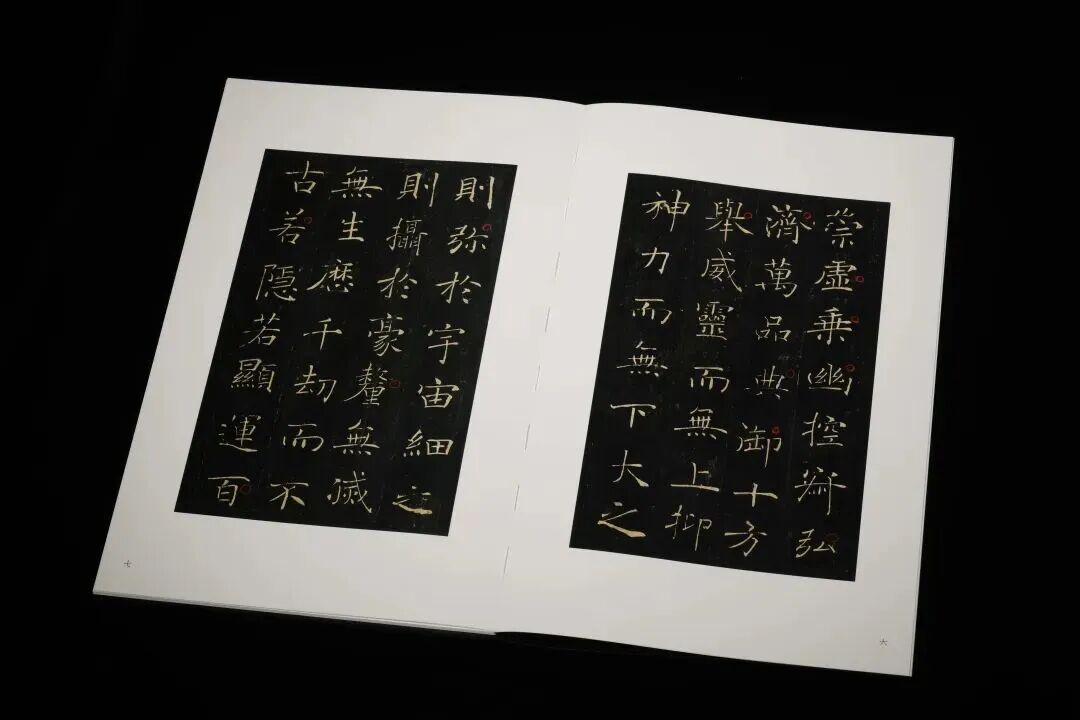 崇虛乘幽控寂弘
濟萬品典御十方
舉威靈而無上抑
神力而無下大之
六
則弥於宇宙細之
則攝於豪釐無滅
無生歷千劫而不
古若隱若顯運百
七